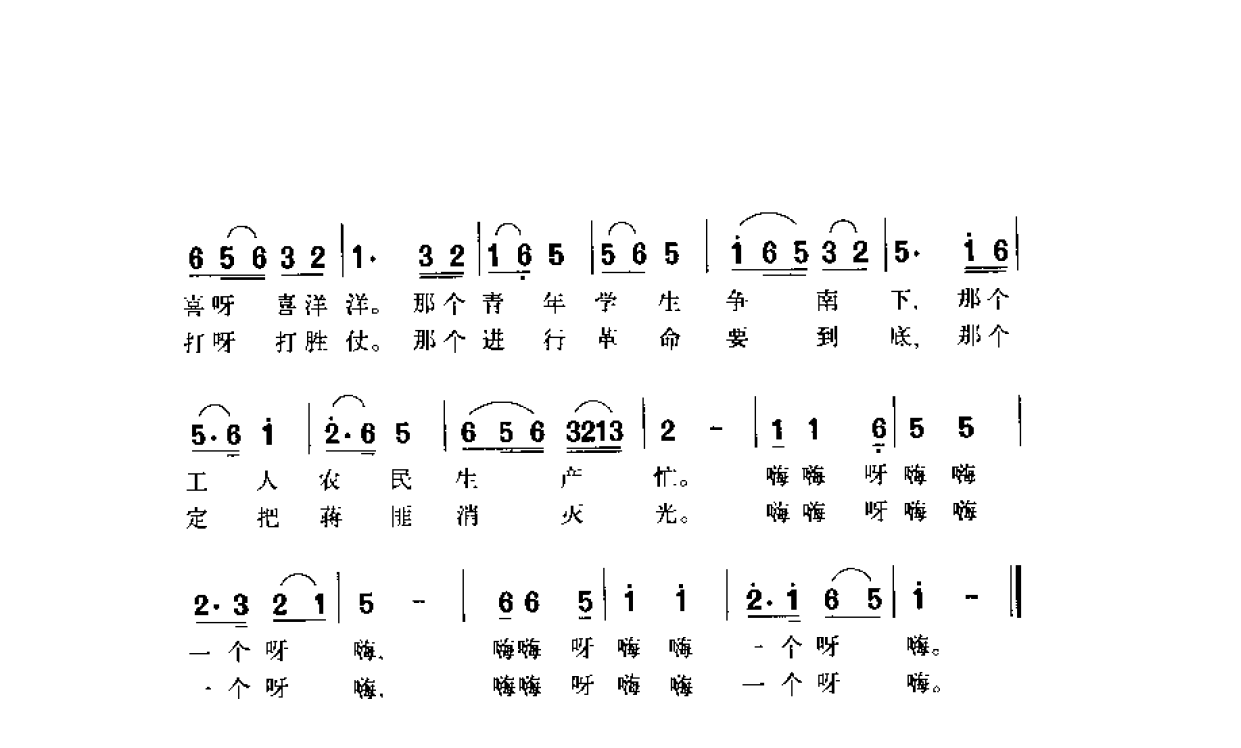 6 5 6 3 2 | 1· 3 2 | 1 6̣ 5 | 5 6 5 | i 6 5 3 2 | 5· i 6 |
喜呀 喜洋洋。那个青 年 学 生 争 南 下，那个
打呀 打胜仗。那个进 行 革 命 要 到 底，那个
5·6 i | 2̇·6 5 | 6 5 6 3213 | 2 - | 1 1 6̣ | 5 5 |
工 人 农 民 生 产 忙。 嗨嗨 呀嗨 嗨
定 把 蒋 匪 消 灭 光。 嗨嗨 呀嗨 嗨
2·3 2 1 | 5 - | 6 6 5 | i i | 2̇·i 6 5 | i - ‖
一个呀 嗨， 嗨嗨 呀嗨 嗨 一个呀 嗨。
一个呀 嗨， 嗨嗨 呀嗨 嗨 一个呀 嗨。